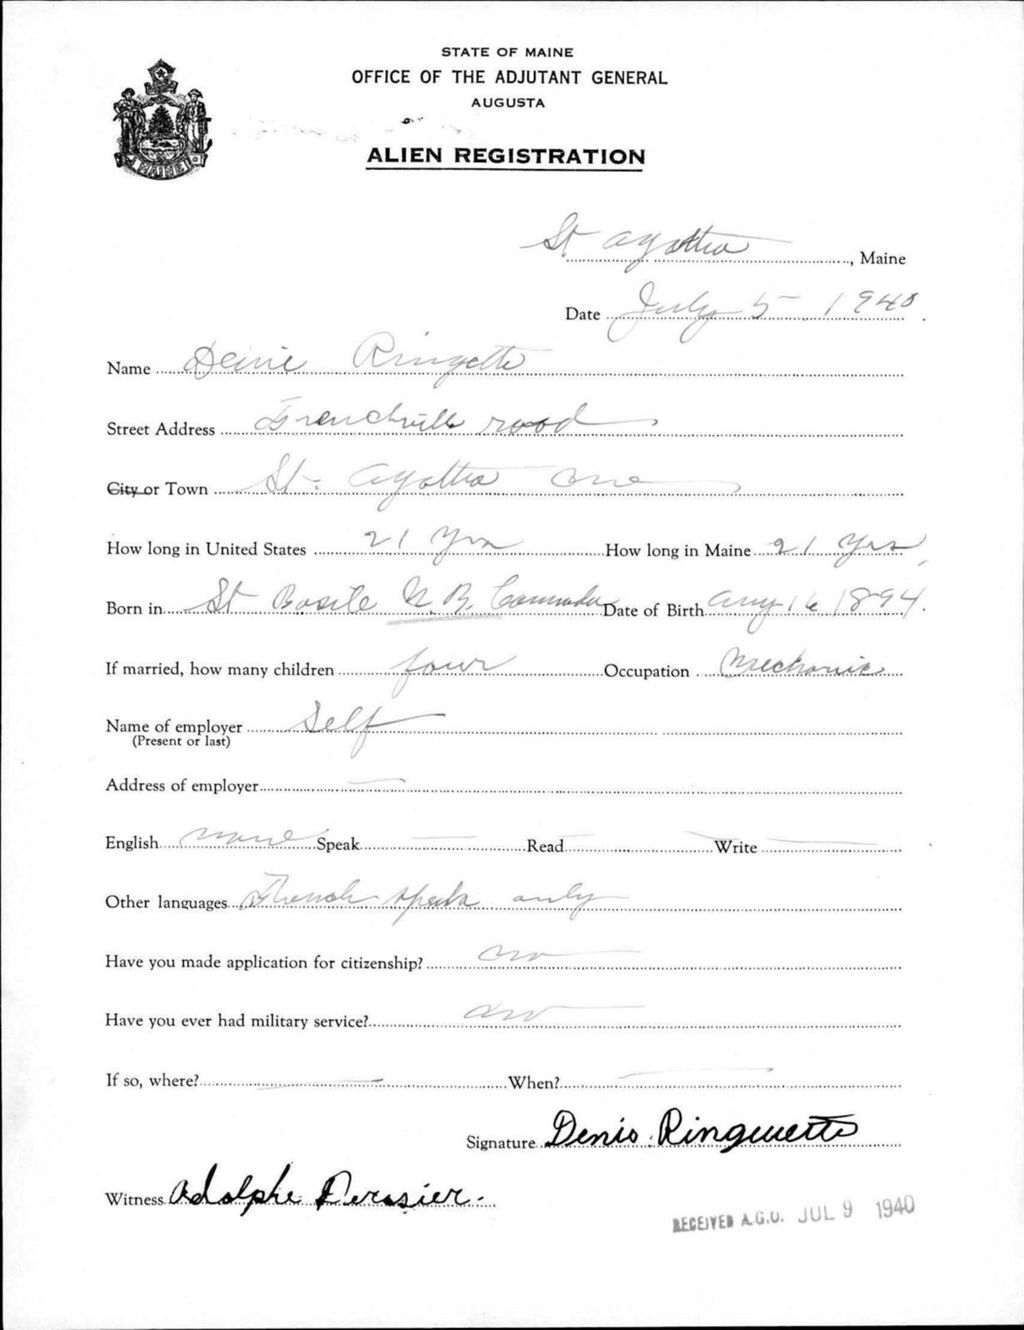 STATE OF MAINE
OFFICE OF THE ADJUTANT GENERAL
AUGUSTA
ALIEN REGISTRATION
MAINE
St Agatha, Maine
Date July 5, 1940
Name Denie Ringette
Street Address Frenchville road
City or Town St. Agatha Me
How long in United States 21 Yrs How long in Maine 21 Yrs
Born in St Basile N.B. Cannada Date of Birth Aug 16 1894
If married, how many children four Occupation Mechanic
Name of employer Self
(Present or last)
Address of employer —
English none Speak — Read — Write —
Other languages French speak only
Have you made application for citizenship? no
Have you ever had military service? no
If so, where? — When? —
Signature Denis Ringuette
Witness Adolphe Derosier.
RECEIVED A.G.O. JUL 9 1940